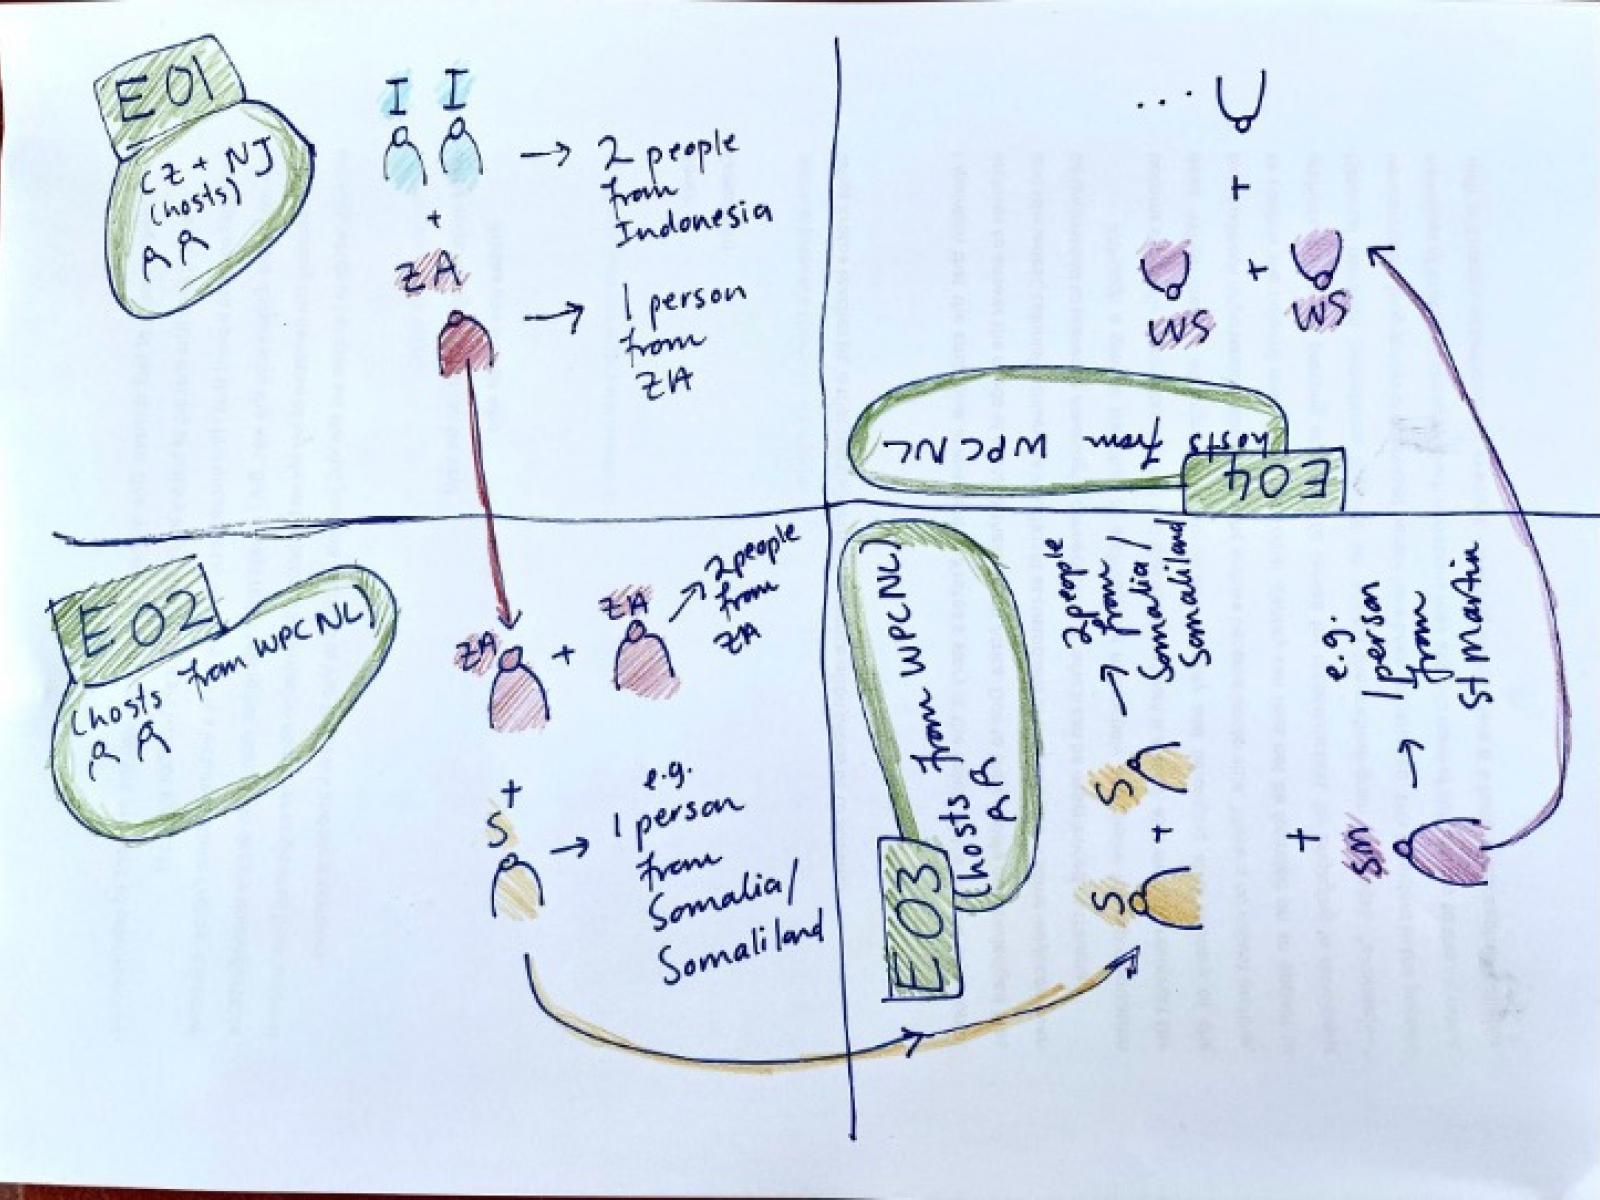 E01
CZ + NJ
(hosts)
I I
→ 2 people
from
Indonesia
+
ZA
→ 1 person
from
ZA
E02
(hosts from WPCNL)
ZA + ZA
→ 2 people
from
ZA
+
S
→ e.g.
1 person
from
Somalia/
Somaliland
E03
(hosts from WPCNL)
S + S
→ 2 people
from
Somalia/
Somaliland
+
SM
→ e.g.
1 person
from
St Martin
E04
hosts from WPCNL
SM + SM
+
...